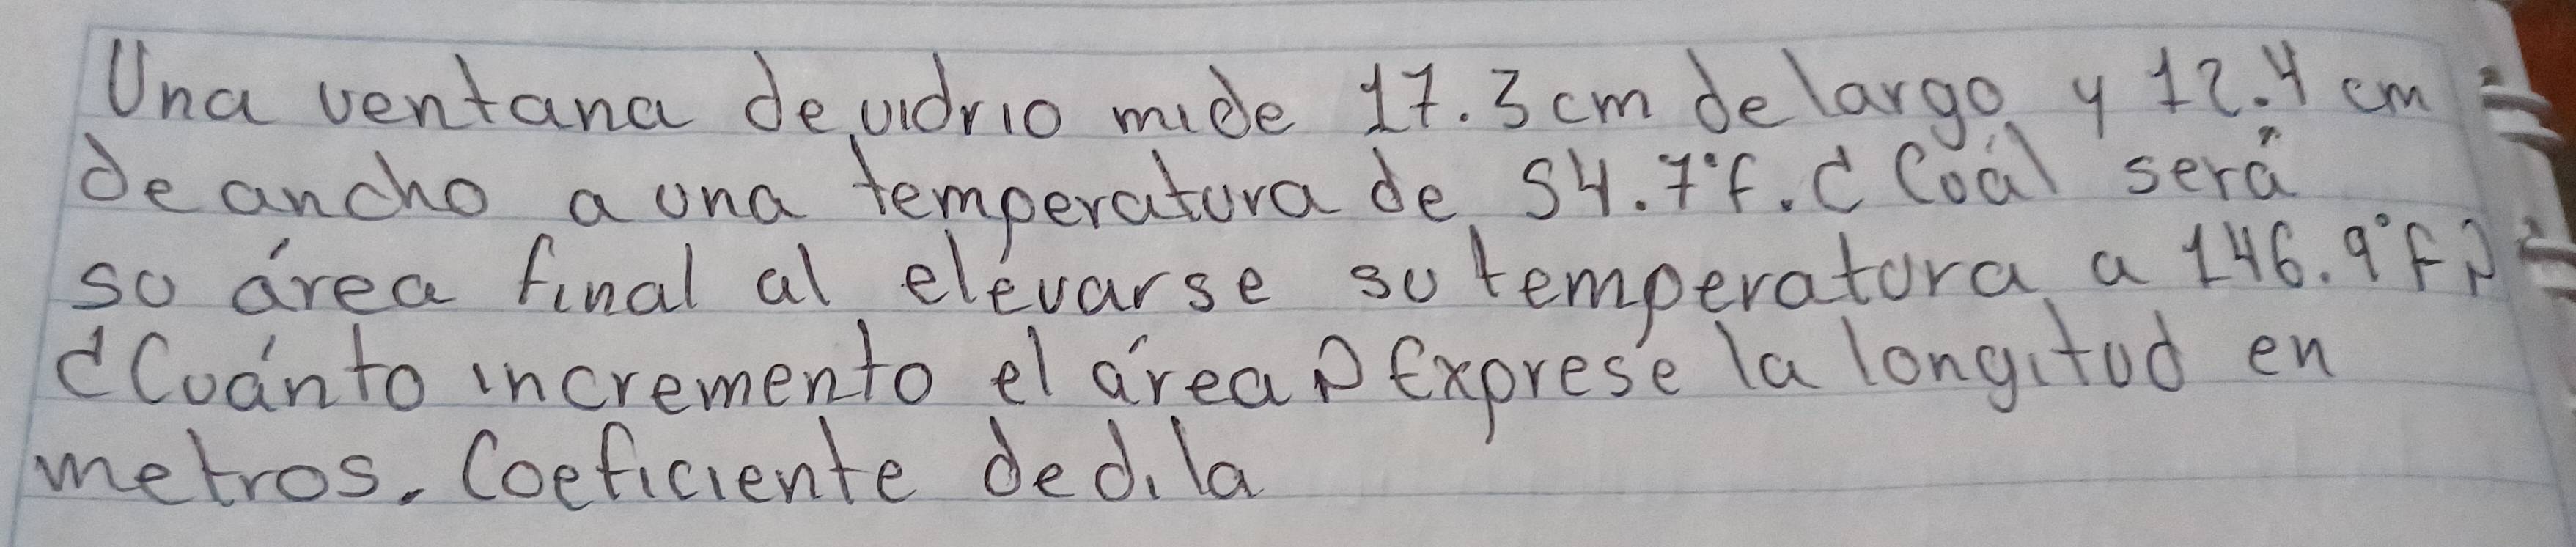 Una ventana de vidrio mide 17.3 cm de largo y 12.4 cm
de ancho a una temperatura de 54.7°f. ¿Cuál será
su área final al elevarse su temperatura a 146.9°F?
¿Cuánto incremento el área? Exprese la longitud en
metros. Coeficiente de dila